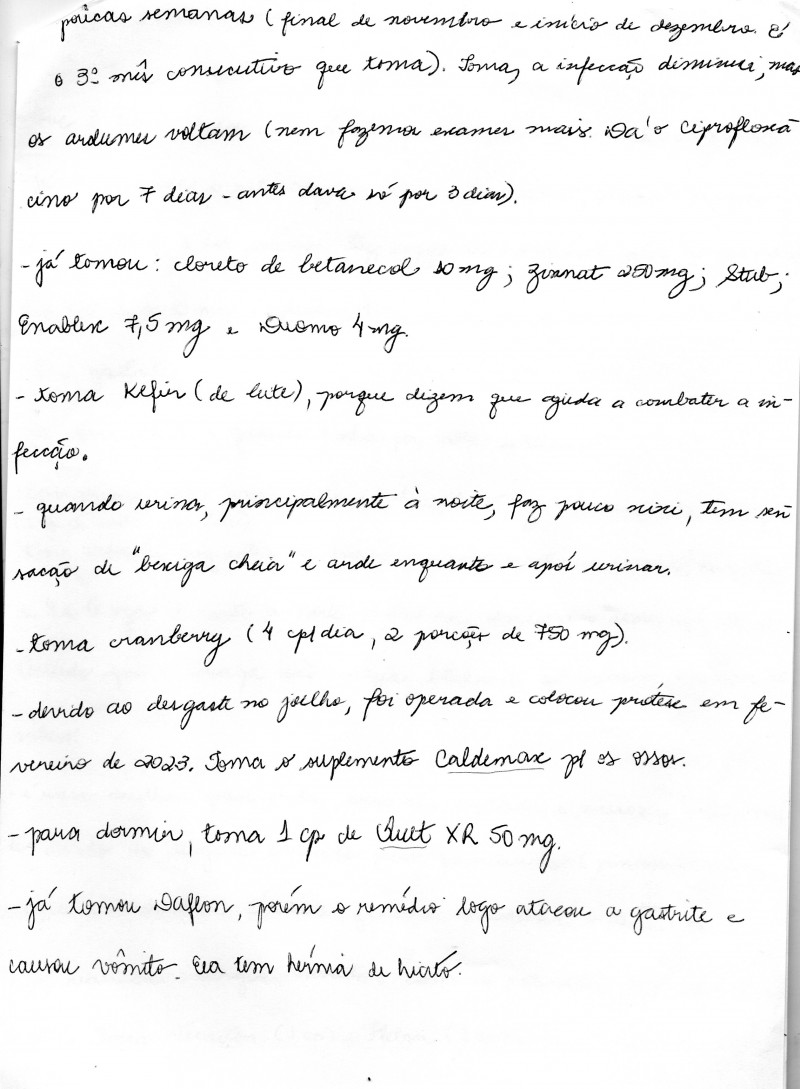 poucas semanas (final de novembro e início de dezembro. É
o 3º mês consecutivo que toma). Toma, a infecção diminui, mas
os ardumes voltam (nem fazemos exames mais. Dá o ciprofloxa
cino por 7 dias - antes dava só por 3 dias).
- já tomou: cloreto de betanecol 10 mg; Zinnat 250 mg; Stub;
Enablex 7,5 mg e Duomo 4 mg.
- toma Kefir (de leite), porque dizem que ajuda a combater a in-
fecção.
- quando urina, principalmente à noite, faz pouco xixi, tem sen
sação de "bexiga cheia" e arde enquanto e após urinar.
- toma cranberry (4 cp/dia, 2 porções de 750 mg).
- devido ao desgaste no joelho, foi operada e colocou prótese em fe-
vereiro de 2023. Toma o suplemento Caldemax p/ os ossos.
- para dormir, toma 1 cp de Quet XR 50 mg.
- já tomou Daflon, porém o remédio logo atacou a gastrite e
causou vômito. Ela tem hérnia de hiato.